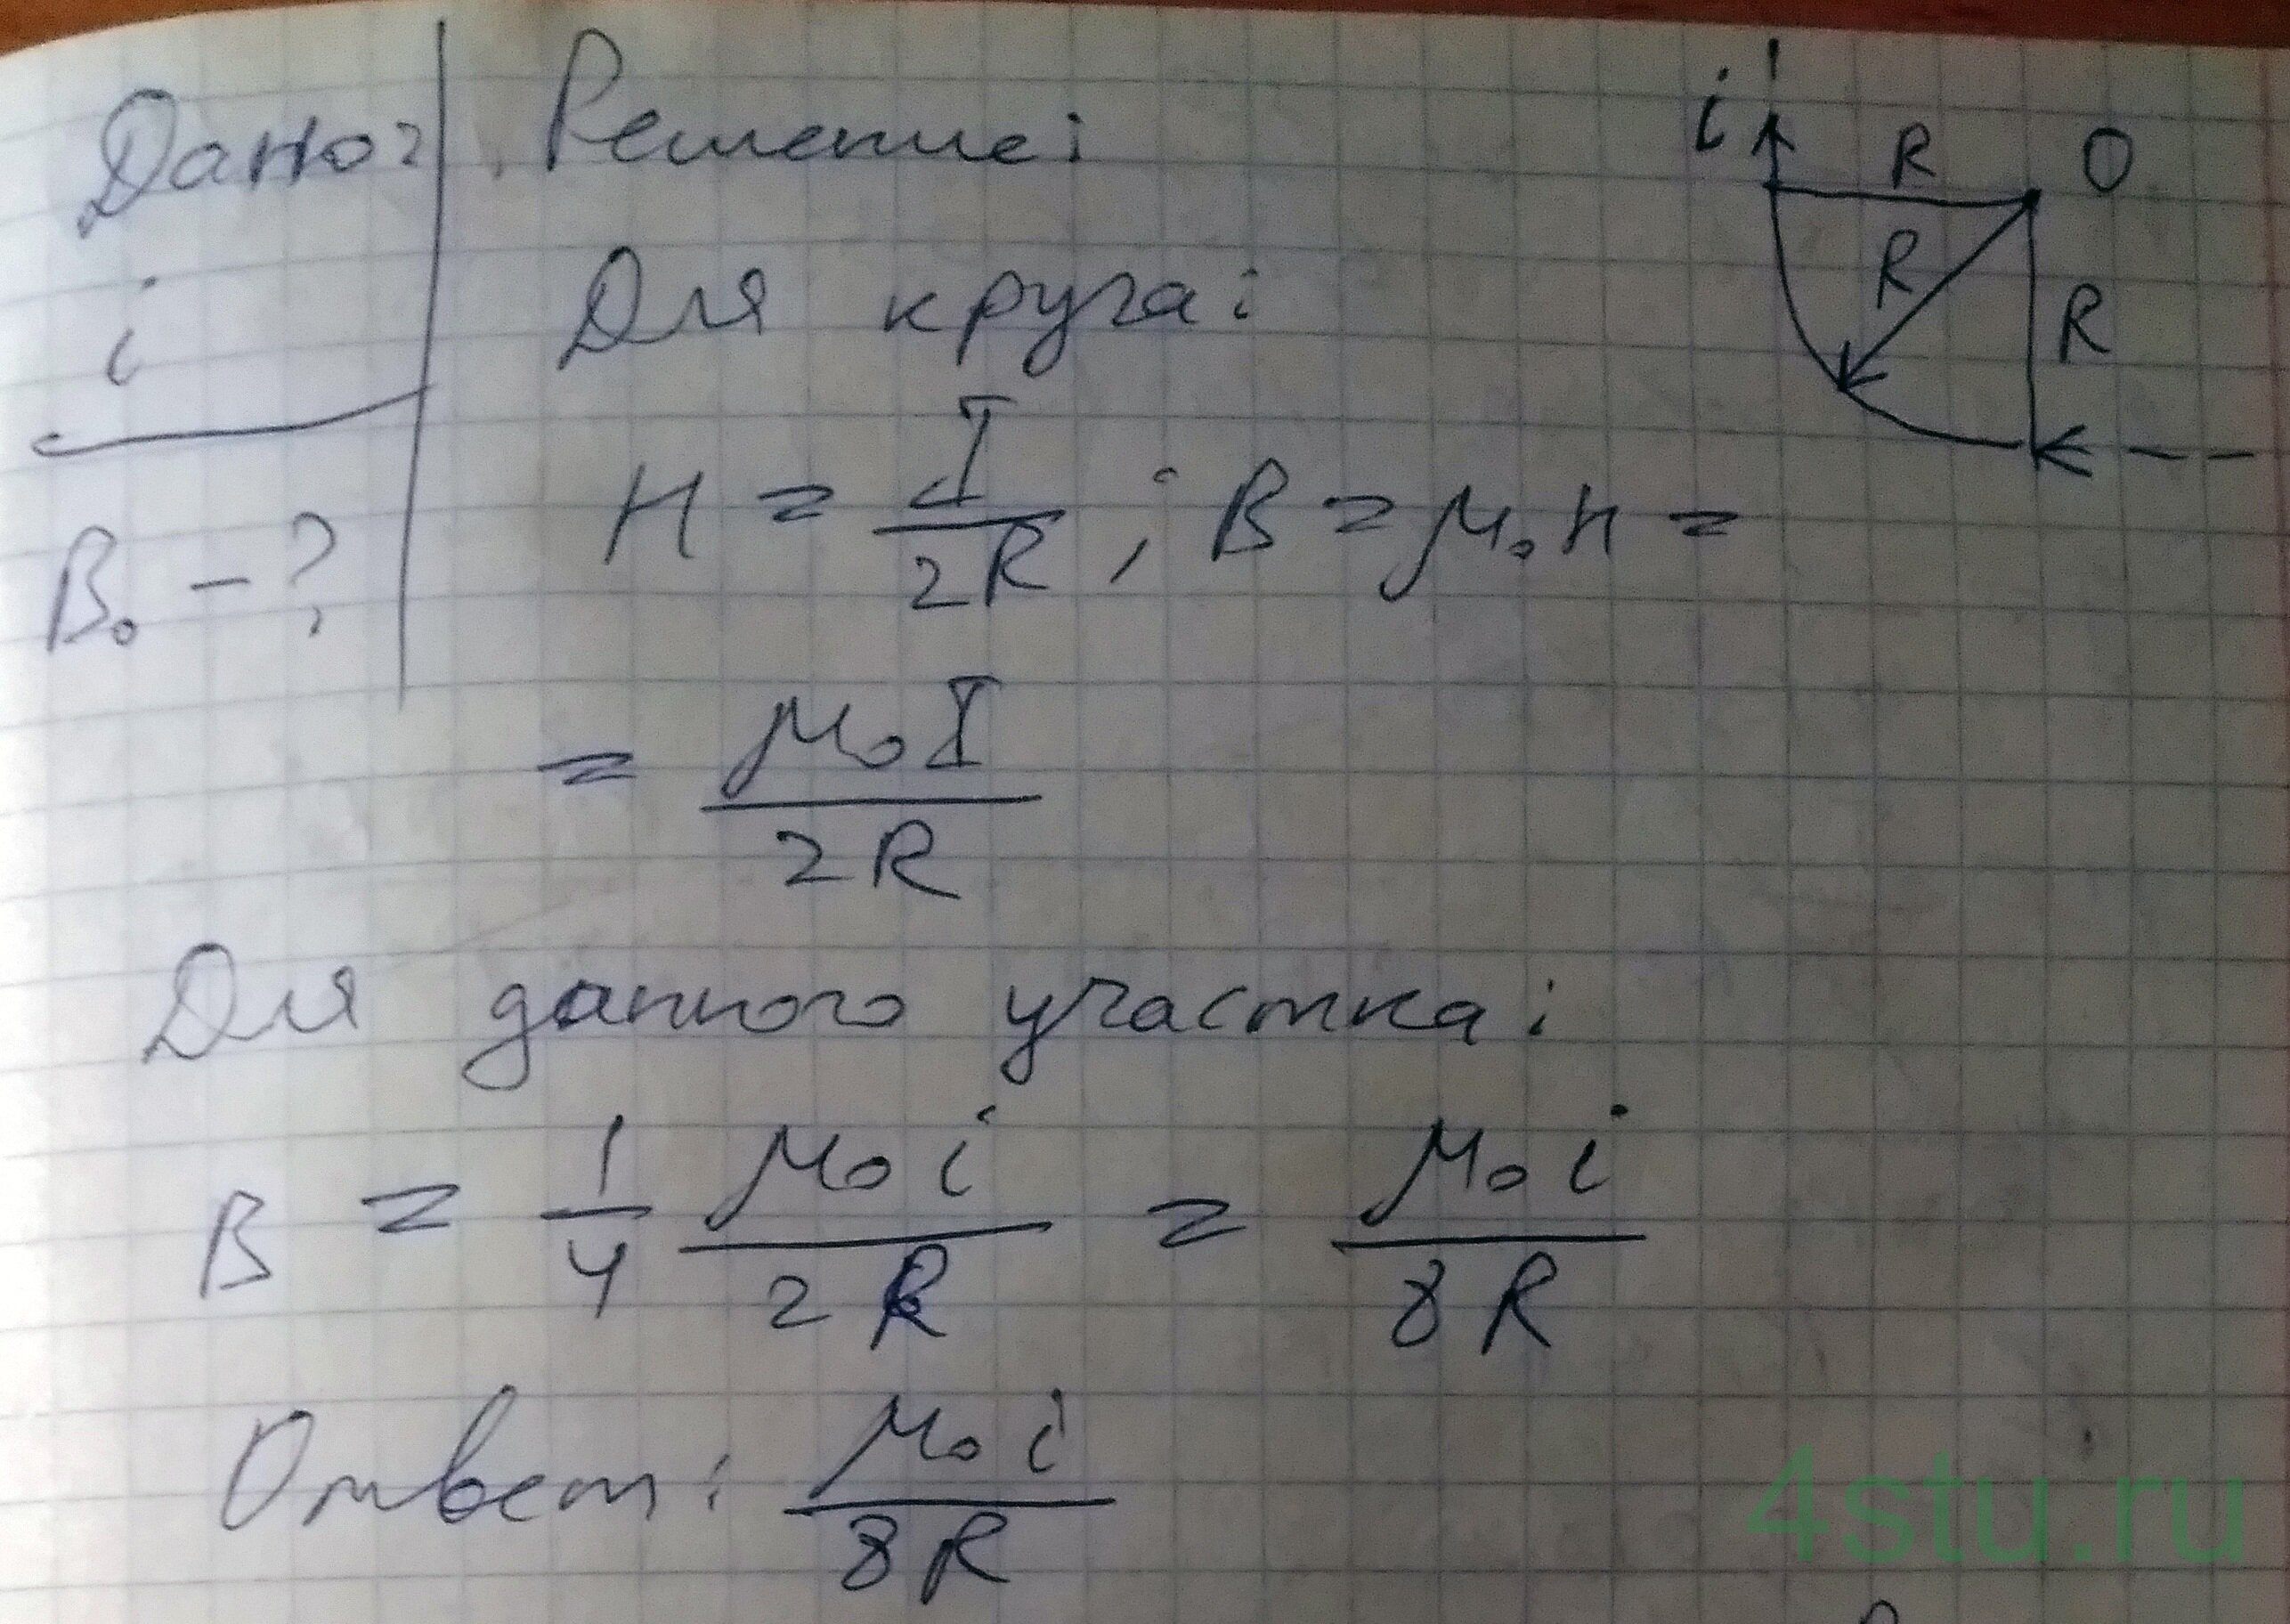 Дано:
i
B₀ - ?
Решение:
Для круга:
H = I / 2R ; B = μ₀H =
= μ₀I / 2R
i
R
O
R
R
Для данного участка:
B = 1/4 μ₀i / 2R = μ₀i / 8R
Ответ: μ₀i / 8R
4stu.ru